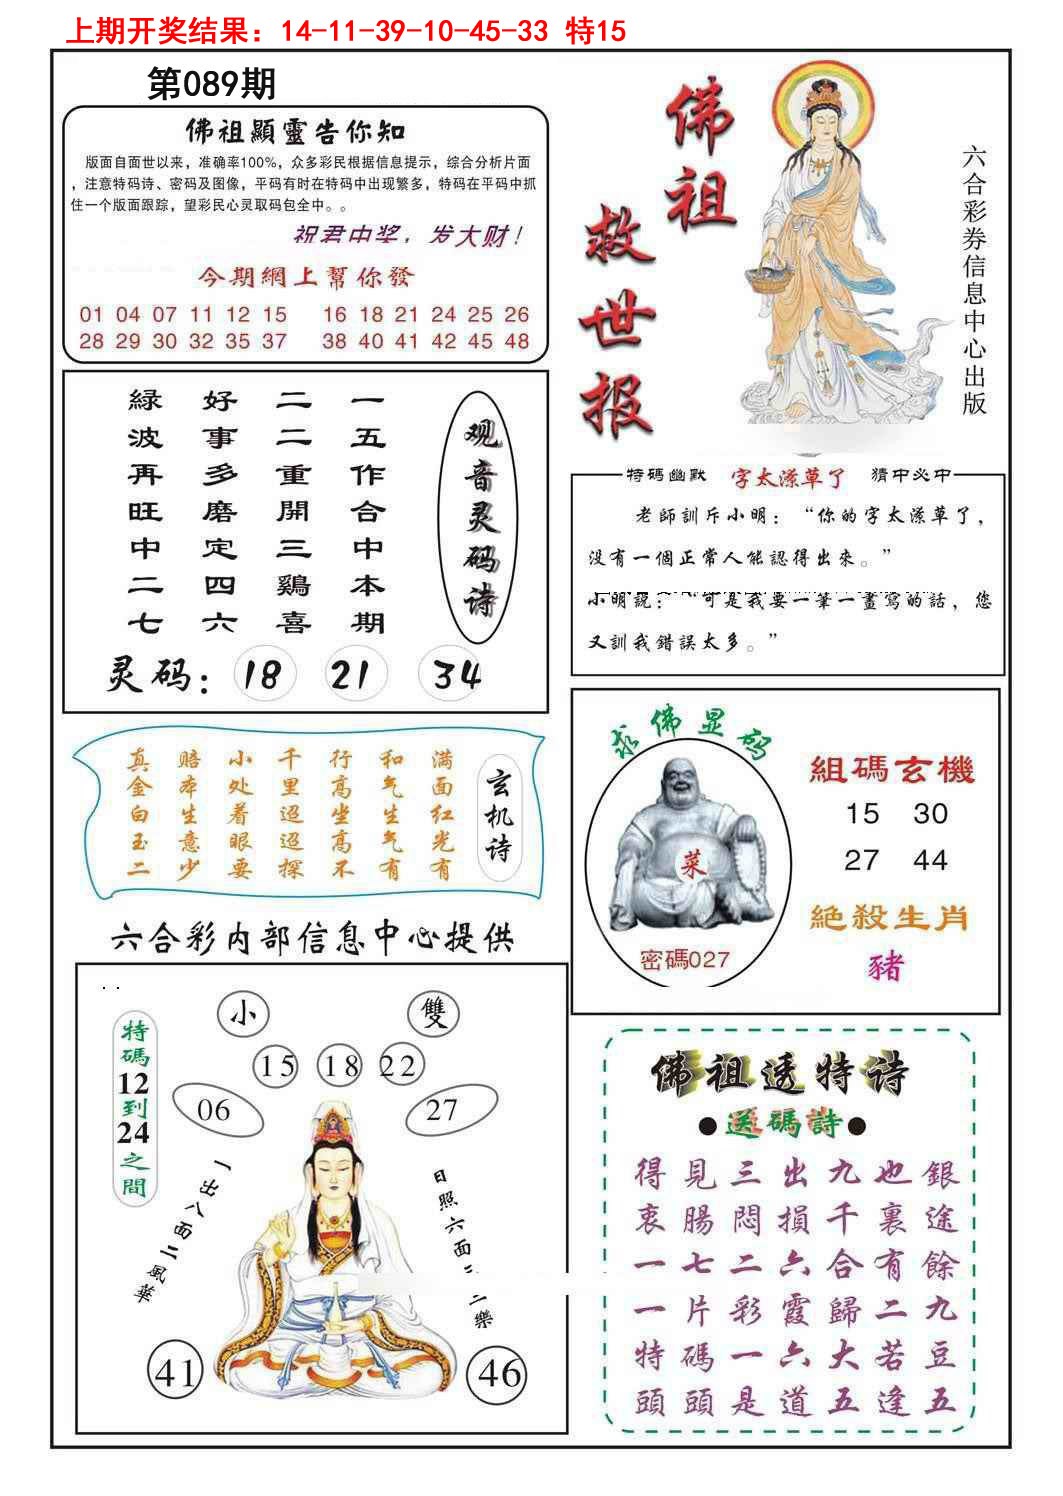 上期开奖结果：14-11-39-10-45-33 特15
第089期
佛祖顯靈告你知
版面自面世以来，准确率100%，众多彩民根据信息提示，综合分析片面
，注意特码诗、密码及图像，平码有时在特码中出现繁多，特码在平码中抓
住一个版面跟踪，望彩民心灵取码包全中。。
祝君中奖，发大财！
今期網上幫你發
01 04 07 11 12 15 16 18 21 24 25 26
28 29 30 32 35 37 38 40 41 42 45 48
佛祖
救世报
六合彩券信息中心出版
观音灵码诗
一五作合中本期
二二重開三鷄喜
好事多磨定四六
緑波再旺中二七
灵码：18 21 34
特碼幽默 字太潦草了 猜中必中
老師訓斥小明：“你的字太潦草了，
没有一個正常人能認得出來。”
小明説：“可是我要一筆一畫寫的話，您
又訓我錯誤太多。”
玄机诗
满面红光有
和气生气有
行高坐高不
千里迢迢探
小处着眼要
赔本生意少
真金白玉二
求佛显码
菜
密碼027
組碼玄機
15 30
27 44
絶殺生肖
豬
六合彩内部信息中心提供
特碼12到24之間
小 雙
15 18 22
06 27
一出八面二風華
日照六面三二樂
41 46
佛祖透特诗
●送碼詩●
得見三出九也銀
衷腸悶損千裏途
一七二六合有餘
一片彩霞歸二九
特碼一六大若豆
頭頭是道五逢五